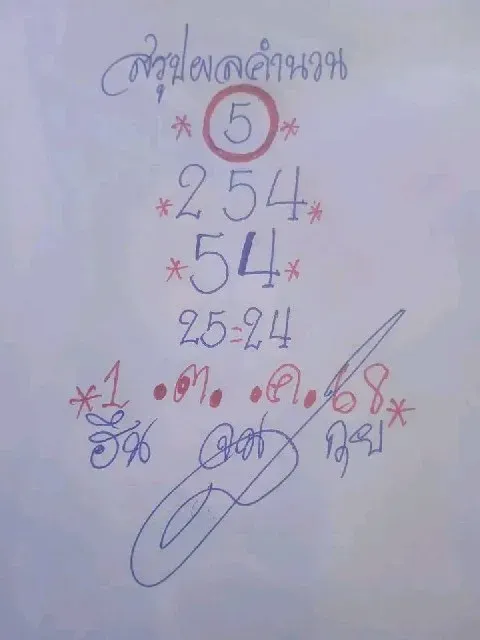 สรุปผลคำนวน
* 5 *
* 254 *
* 54 *
25=24
*1 .ต. .ค. 68*
ฮึน